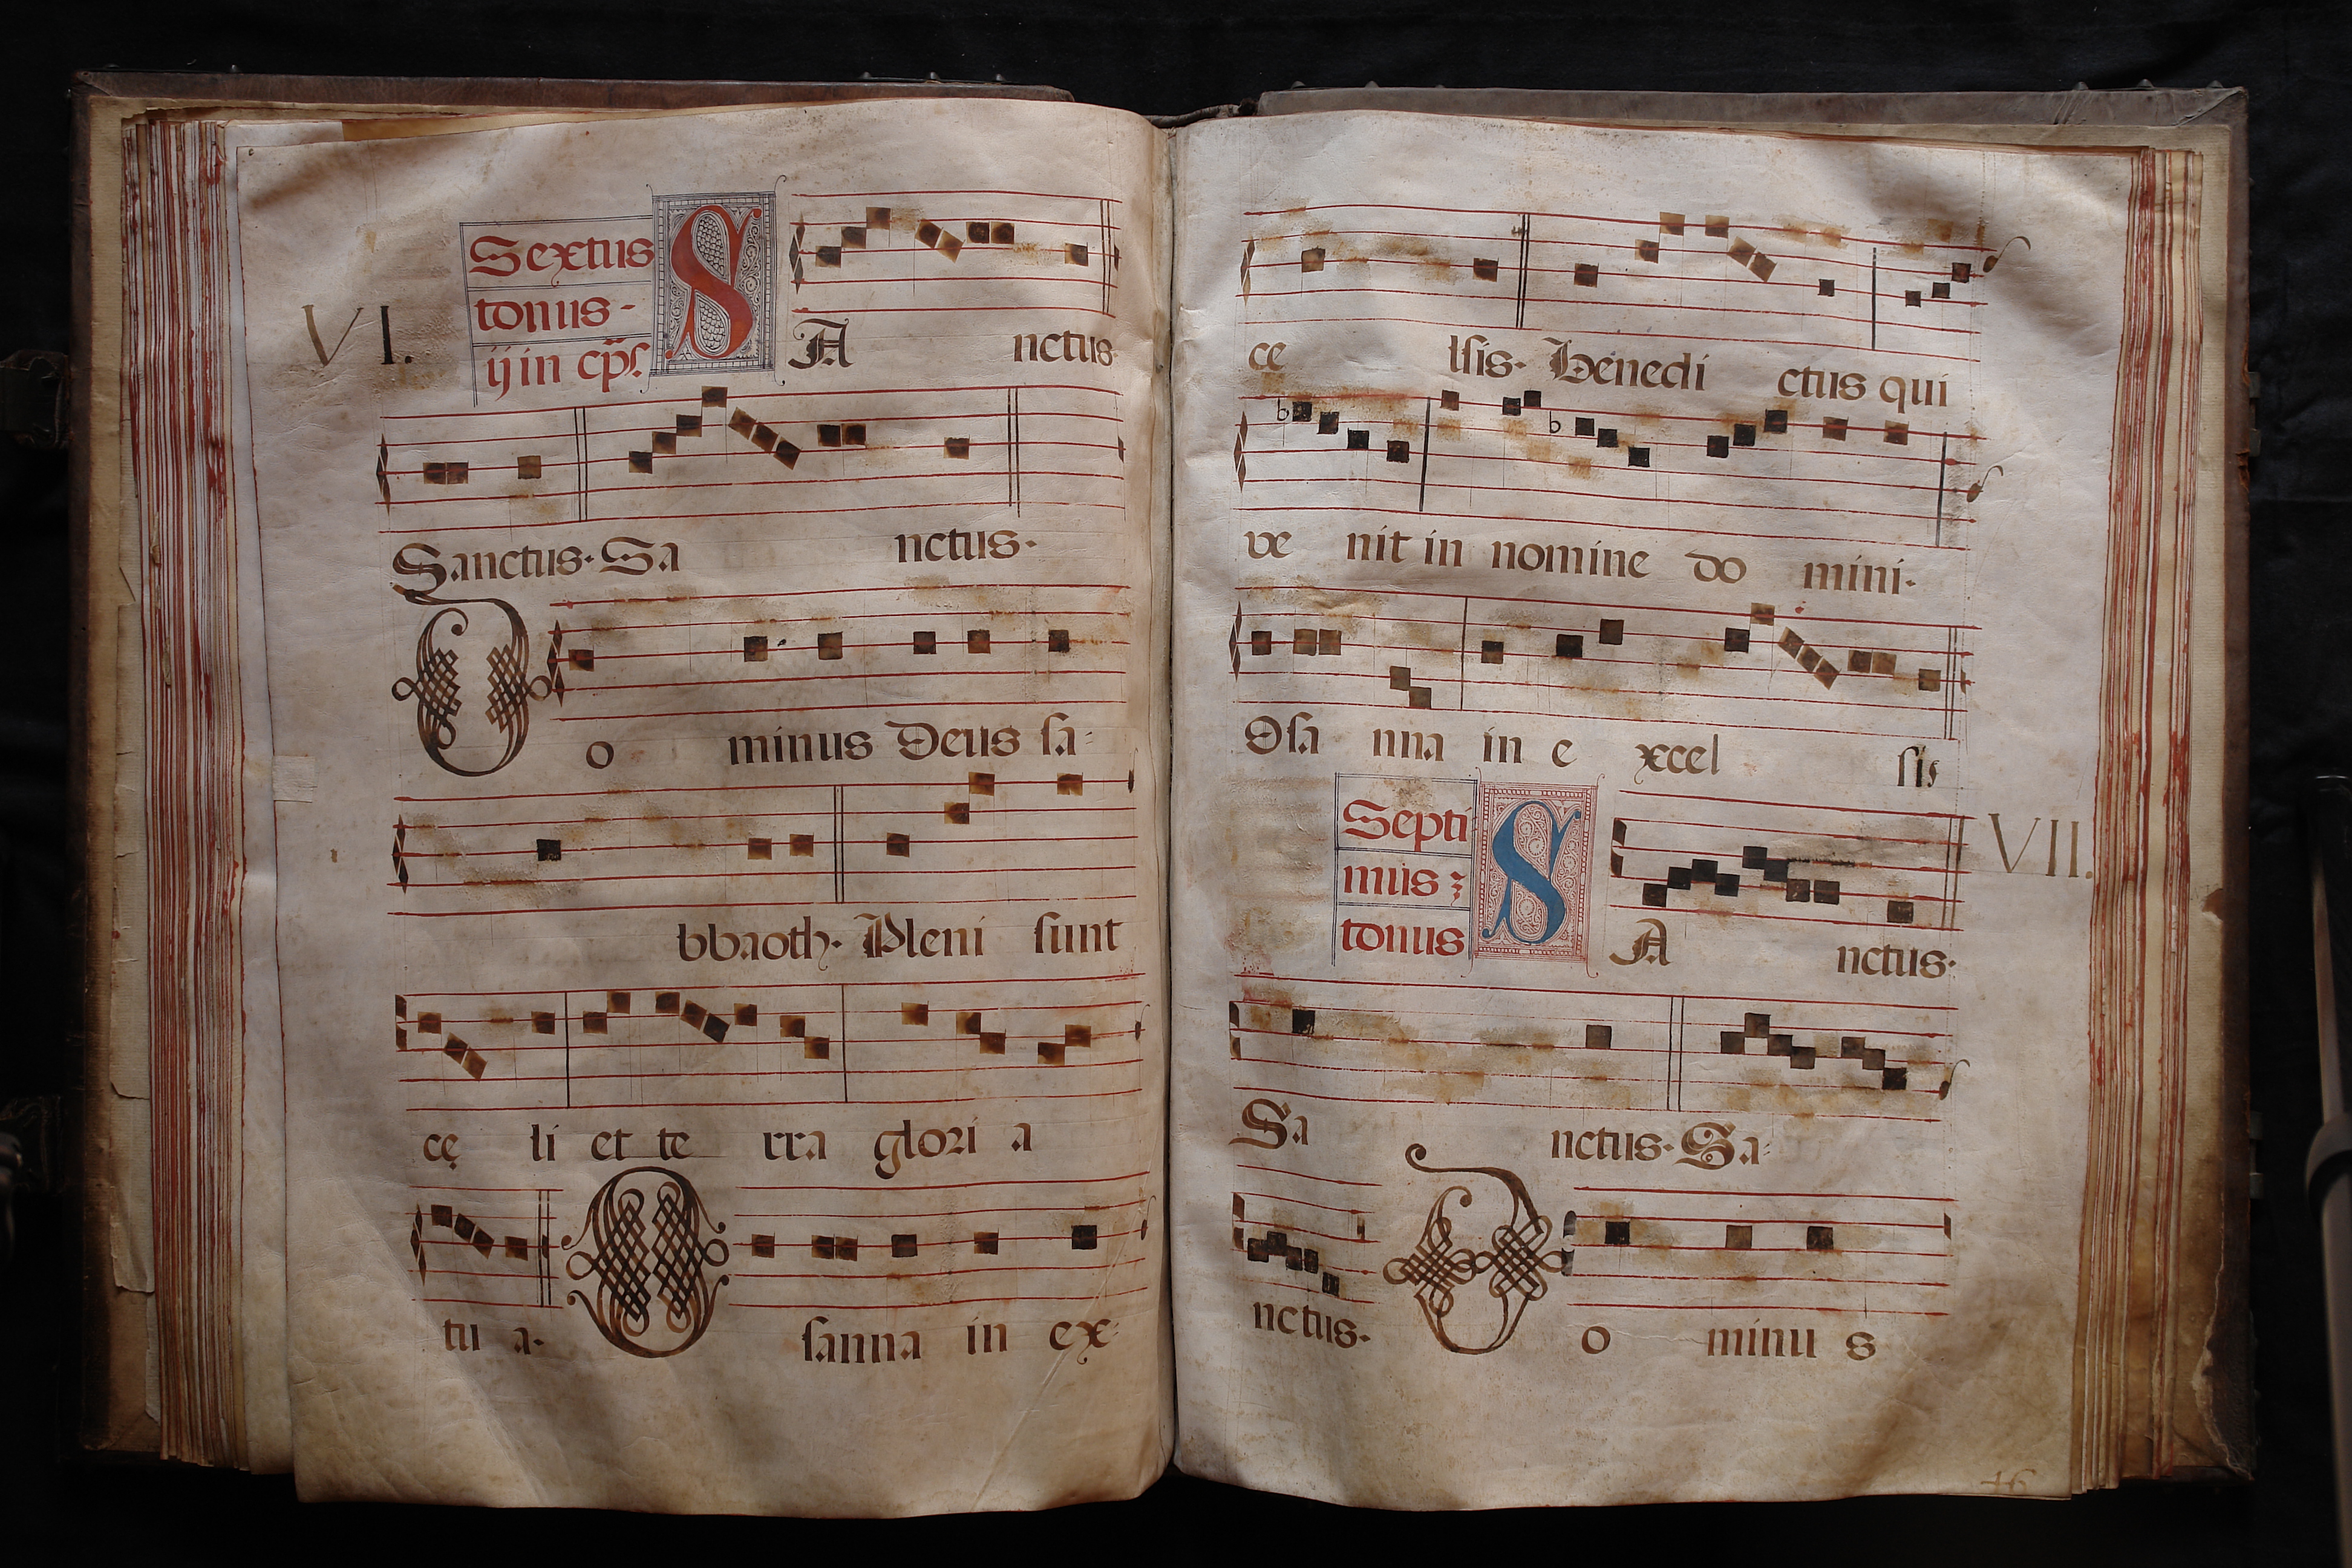 VI.
Sextus
tonus-
ij in cp̃l.
SA nctus
Sanctus. Sa nctus.
Do minus Deus sa=
bbaoth. Pleni sunt
cę li et te rra glori a
tu a. O sanna in ex=
ce lsis. Benedi ctus qui
ve nit in nomine do mini.
Osa nna in e xcel sis
Septi
mus
tonus
VII.
SA nctus.
Sa nctus. Sa=
nctus. Do minu s
46